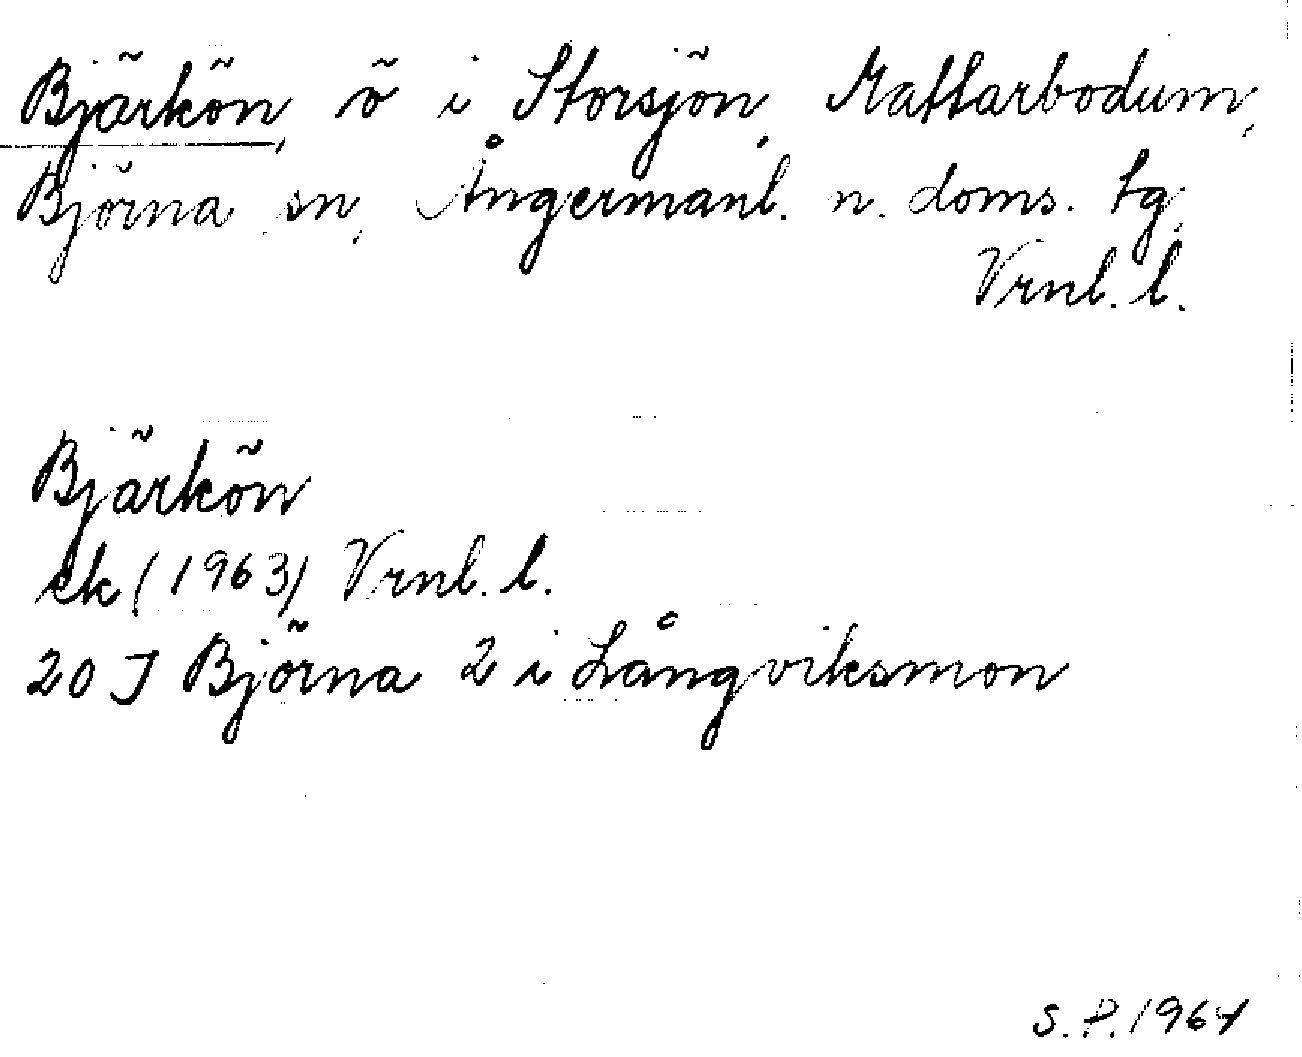 Bjärkön, ö i Storsjön, Mattarbodum,
Björna sn, Ångermanl. n. doms. tg,
Vrnl. l.
Bjärkön
ek (1963) Vrnl. l.
20 J Björna 2 i Långviksmon
S. P. 1964